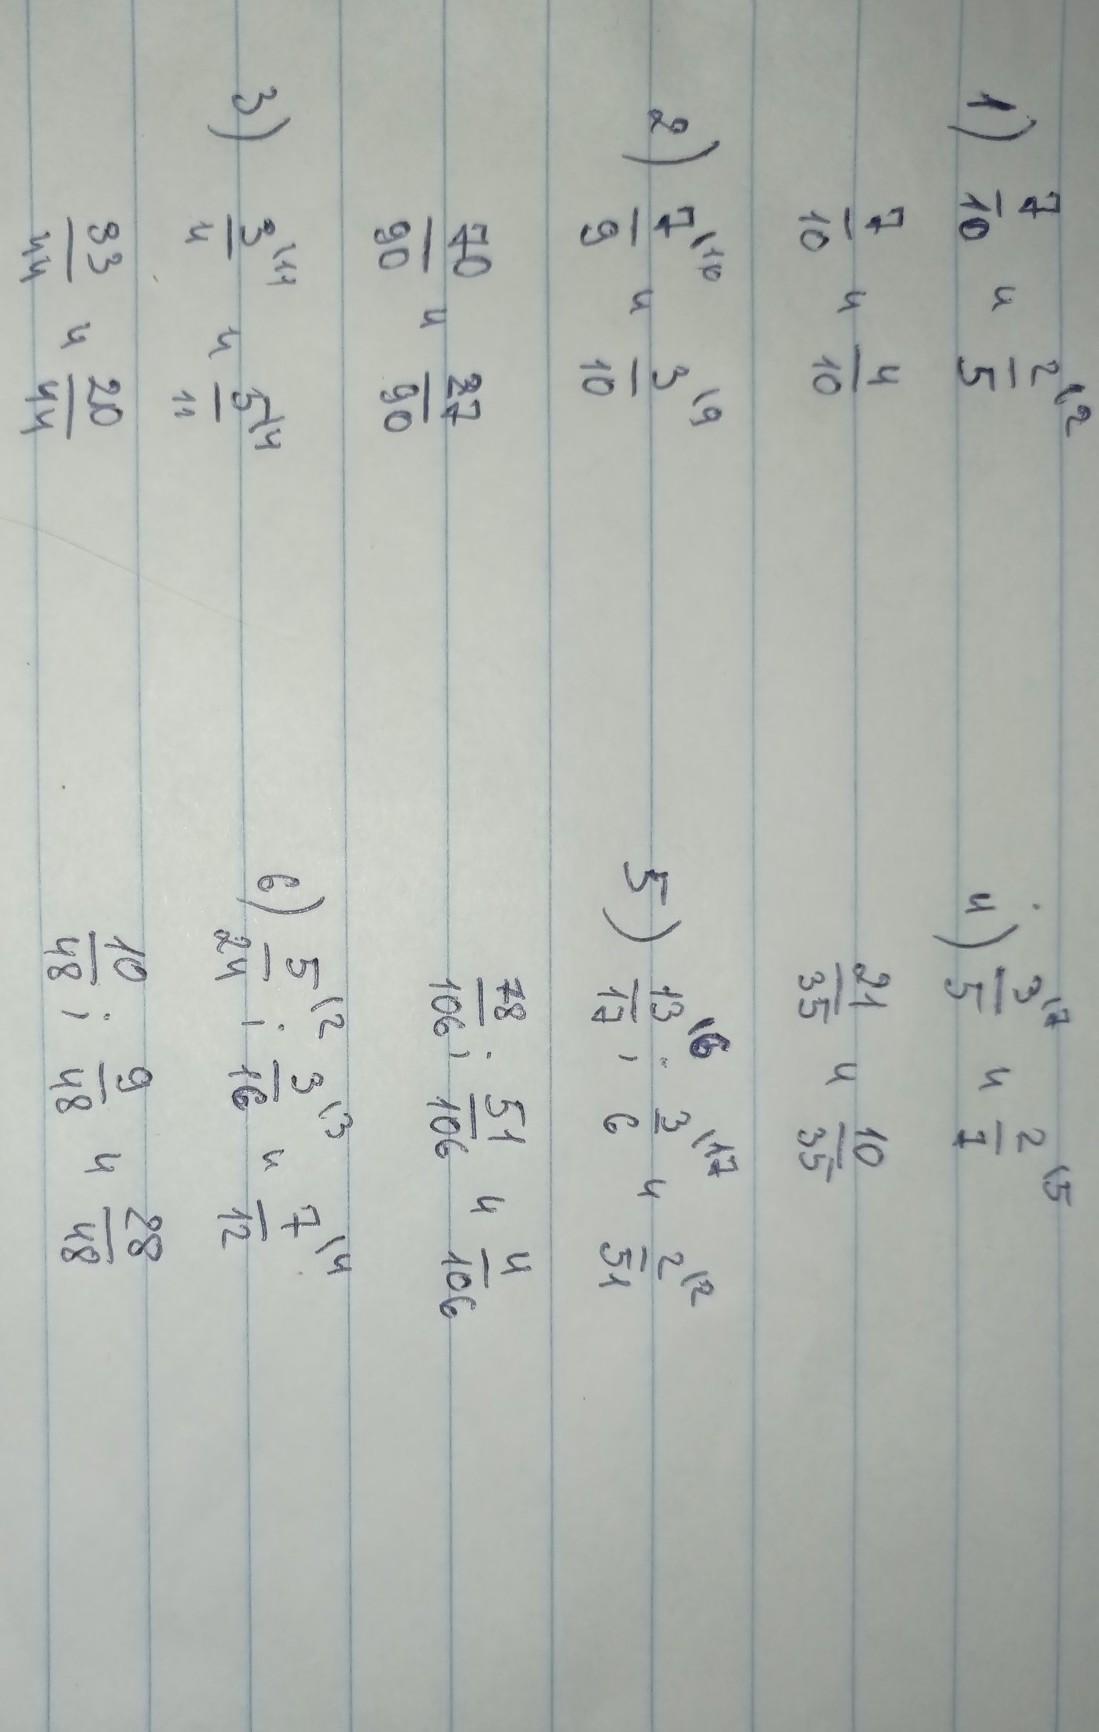 1) 7/10 и 2/5 \2
7/10 и 4/10
2) 7/9 \10 и 3/10 \9
70/90 и 27/90
3) 3/4 \11 и 5/11 \4
33/44 и 20/44
4) 3/5 \7 и 2/7 \5
21/35 и 10/35
5) 13/17 \6 ; 3/6 \17 и 2/51 \2
78/106 ; 51/106 и 4/106
6) 5/24 \2 ; 3/16 \3 и 7/12 \4
10/48 ; 9/48 и 28/48